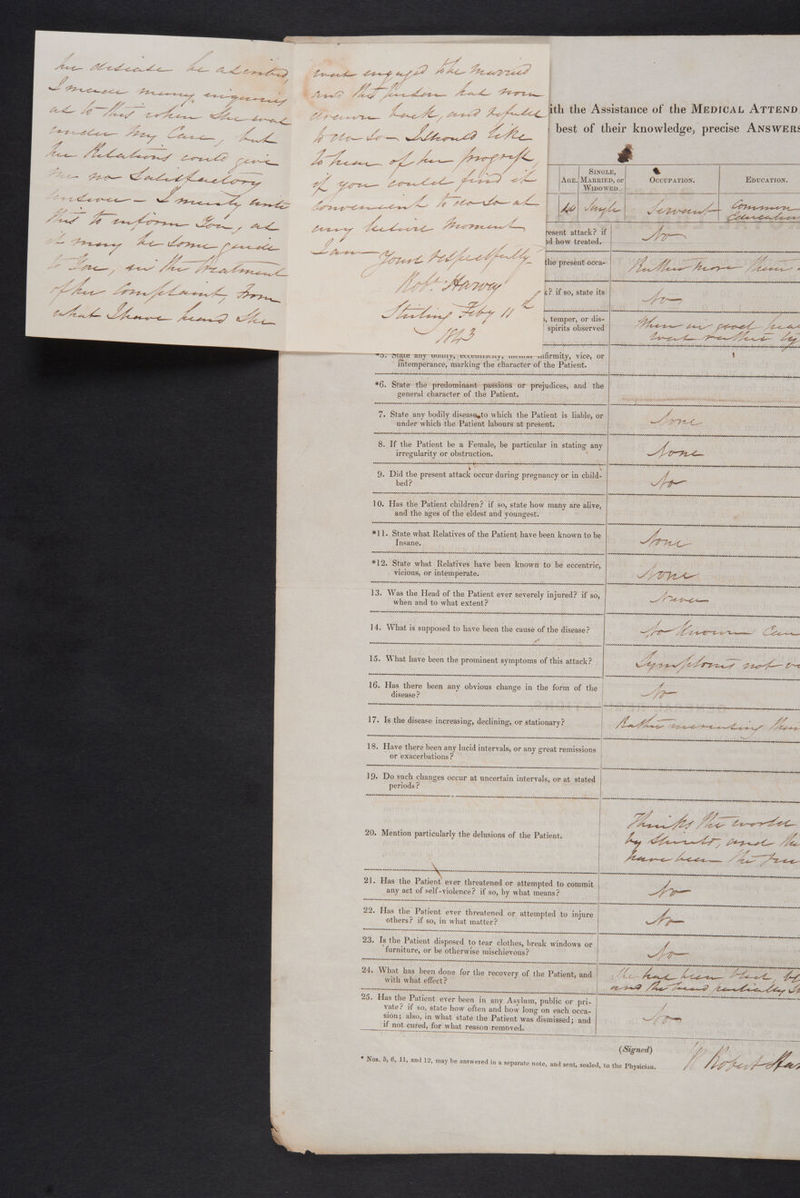 her disease be ascribed
I made many enquiries
as to this when She was
under my Care, but
her Relations could give
me no Satisfactory
Answer — I merely write
this to inform You, as
it may be Some guide
to You, in the treatment
of her Complaint, from
what I have heard She
was engaged to be married
and this person has now
drawn back, and refuses
to do So — I Should like
to hear of her progress,
if you could find it
Convenient to do So at
any leisure moment
I am Yours respectfully
Robt Harvey
Stirling Feby 11th
1843
ith the Assistance of the MEDICAL ATTEND
best of their knowledge, precise ANSWERS
AGE. SINGLE, MARRIED, or WIDOWED. OCCUPATION. EDUCATION.
Single Servant Common Education
resent attack? if
d how treated. No
the present occa- Rather more than
? if so, state its No
, temper, or dis-
spirits observed When in good
*5. State any oddity, eccentricity, mental infirmity, vice, or
intemperance, marking the character of the Patient.
*6. State the predominant passions or prejudices, and the
general character of the Patient.
7. State any bodily disease to which the Patient is liable, or
under which the Patient labours at present. None
8. If the Patient be a Female, be particular in stating any
irregularity or obstruction. None
9. Did the present attack occur during pregnancy or in child-
bed? No
10. Has the Patient children? if so, state how many are alive,
and the ages of the eldest and youngest.
*11. State what Relatives of the Patient have been known to be
Insane. None
*12. State what Relatives have been known to be eccentric,
vicious, or intemperate. None
13. Was the Head of the Patient ever severely injured? if so,
when and to what extent? Never
14. What is supposed to have been the cause of the disease? No Known Cau
15. What have been the prominent symptoms of this attack? Symptoms not
16. Has there been any obvious change in the form of the
disease? No
17. Is the disease increasing, declining, or stationary? Rather increasing than
18. Have there been any lucid intervals, or any great remissions
or exacerbations?
19. Do such changes occur at uncertain intervals, or at stated
periods?
20. Mention particularly the delusions of the Patient. Thinks the world
by and the
have been the
21. Has the Patient ever threatened or attempted to commit
any act of self-violence? if so, by what means? No
22. Has the Patient ever threatened or attempted to injure
others? if so, in what matter? No
23. Is the Patient disposed to tear clothes, break windows or
furniture, or be otherwise mischievous? No
24. What has been done for the recovery of the Patient, and
with what effect? She has been bled,
and the head
25. Has the Patient ever been in any Asylum, public or pri-
vate? if so, state how often and how long on each occa-
sion; also, in what state the Patient was dismissed; and
if not cured, for what reason removed. No
(Signed) Robert Har
* Nos. 5, 6, 11, and 12, may be answered in a separate note, and sent, sealed, to the Physician.